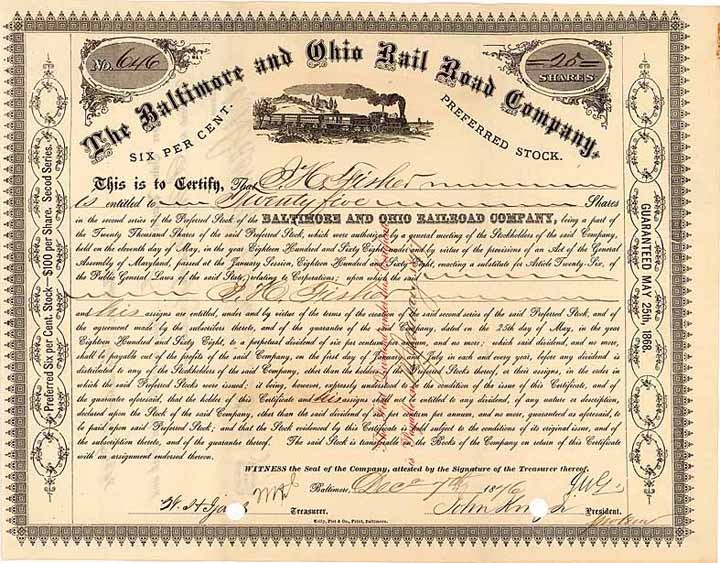 No. 646
25
SHARES
The Baltimore and Ohio Rail Road Company.
SIX PER CENT. PREFERRED STOCK.
This is to Certify, That J. H. Fisher
is entitled to Twenty five Shares
in the second series of the Preferred Stock of the BALTIMORE AND OHIO RAILROAD COMPANY, being a part of
the Twenty Thousand Shares of the said Preferred Stock, which were authorized by a general meeting of the Stockholders of the said Company,
held on the eleventh day of May, in the year Eighteen Hundred and Sixty Eight, under and by virtue of the provisions of an Act of the General
Assembly of Maryland, passed at the January Session, Eighteen Hundred and Sixty Eight, enacting a substitute for Article Twenty-Six, of
the Public General Laws of the said State, relating to Corporations; upon which the said
J. H. Fisher
and his assigns are entitled, under and by virtue of the terms of the creation of the said second series of the said Preferred Stock, and of
the agreement made by the subscribers thereto, and of the guarantee of the said Company, dated on the 25th day of May, in the year
Eighteen Hundred and Sixty Eight, to a perpetual dividend of six per centum per annum, and no more; which said dividend, and no more,
shall be payable out of the profits of the said Company, on the first day of January and July in each and every year, before any dividend is
distributed to any of the Stockholders of the said Company, other than the holders of the Preferred Stocks thereof, or their assigns, in the order in
which the said Preferred Stocks were issued: it being, however, expressly understood to be the condition of the issue of this Certificate, and of
the guarantee aforesaid, that the holder of this Certificate and his assigns shall not be entitled to any dividend, of any nature or description,
declared upon the Stock of the said Company, other than the said dividend of six per centum per annum, and no more, guaranteed as aforesaid, to
be paid upon said Preferred Stock; and that the Stock evidenced by this Certificate is sold subject to the conditions of its original issue, and of
the subscription thereto, and of the guarantee thereof. The said Stock is transferable on the Books of the Company on return of this Certificate
with an assignment endorsed thereon.
WITNESS the Seal of the Company, attested by the Signature of the Treasurer thereof.
Baltimore, Decr 7th 1876
Treasurer. President.
Kelly, Piet & Co., Print, Baltimore.
Preferred Six per Cent. Stock—$100 per Share. Second Series.
GUARANTEED MAY 25th, 1868.